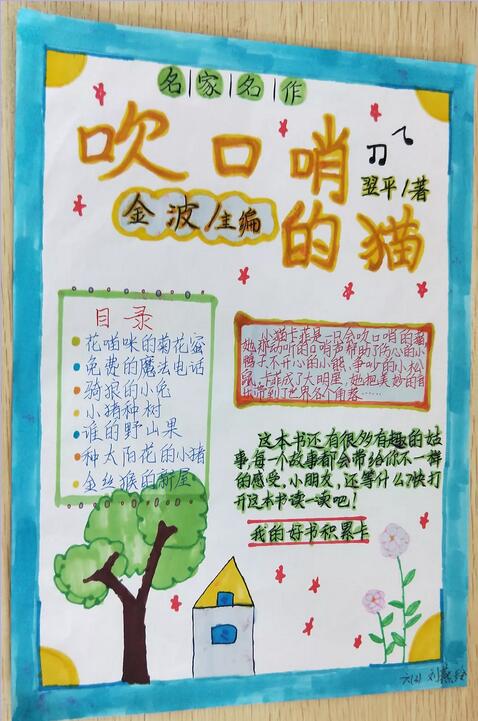 名家名作
吹口哨的猫
翌平/著
金波/主编
目录
花喵咪的菊花蜜
免费的魔法电话
骑狼的小兔
小猪种树
谁的野山果
种太阳花的小猪
金丝猴的新屋
小猫卡菲是一只会吹口哨的猫,
她那动听的口哨声帮助了伤心的小
鸭子、不开心的小熊、争吵的小松
鼠。卡菲成了大明星,她把美妙的音
乐带到了世界各个角落……
这本书还有很多有趣的故
事,每一个故事都会带给你不一样
的感受,小朋友,还等什么?快打
开这本书读一读吧!
我的好书积累卡
六(2) 刘燕绘